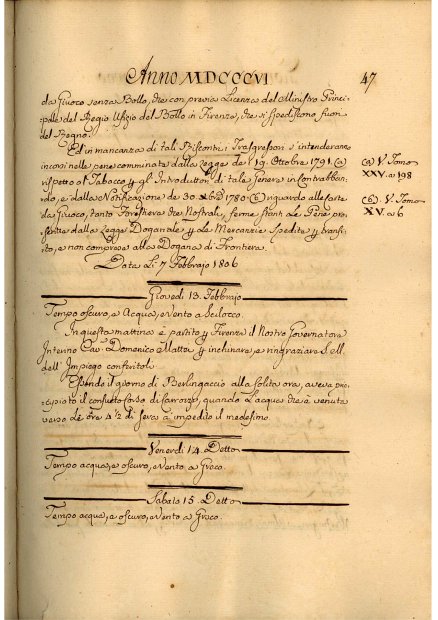 Anno MDCCCVI
47
da Giuoco senza Bollo, che con previa Licenza del Ministro Princi-
pale del Regio Ufizio del Bollo in Firenze, che si spedissono fuori
del Regno.
Ed in mancanza di tali Riscontri i Trasgressori s'intenderanno
incorsi nelle pene comminate dalla Legge de' 19. Ottobre 1791. (a)
(a) V. Tomo
rispetto al Tabacco, gl' Introduttori di tale Genere in Contrabban-
XXV. a 198
do, e dalla Notificazione de' 30 1780 (b) riguardo alle Carte
(b) V. Tomo
da Giuoco, tanto Forestiere che Nostrali, ferme stanti le Pene pre-
XV. a 6
scritte dalla Legge Doganale le Mercanzie spedite transi-
to, e non comprose alla Dogana di Frontiera.
Data Li 7 Febbrajo 1806
Giovedì 13. Febbrajo
Tempo oscuro, e Acqua, e Vento a Scilocco.
In questa mattina è partito Firenze il Nostro Governatore
Interino Cav. Domenico Mattei inchinare, e ringraziare
dell' Impiego conferitoli.
Essendo il giorno di Berlingaccio alla solita ora, aveva prin-
cipiato il consueto Corso di Carrozze, quando L'acqua che è venuta
verso le ore 4 1/2 di sera à impedito il medesimo.
Venerdì 14. Detto
Tempo acqua, e oscuro, e Vento a Greco.
Sabato 15. Detto
Tempo acqua, e oscuro, e Vento a Greco.